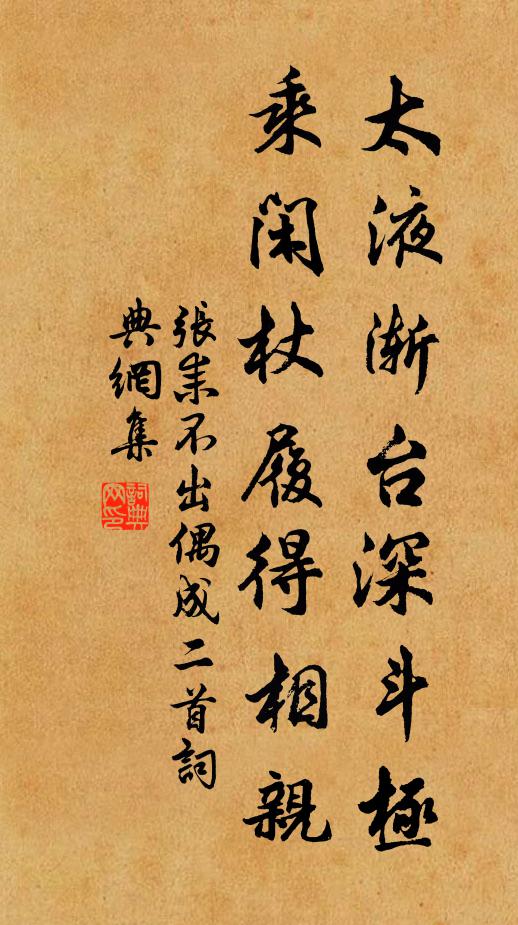 太液渐台深斗極
乘閑杖履得相親
張耒不出偶成二首詞
典網集
詞典
网印